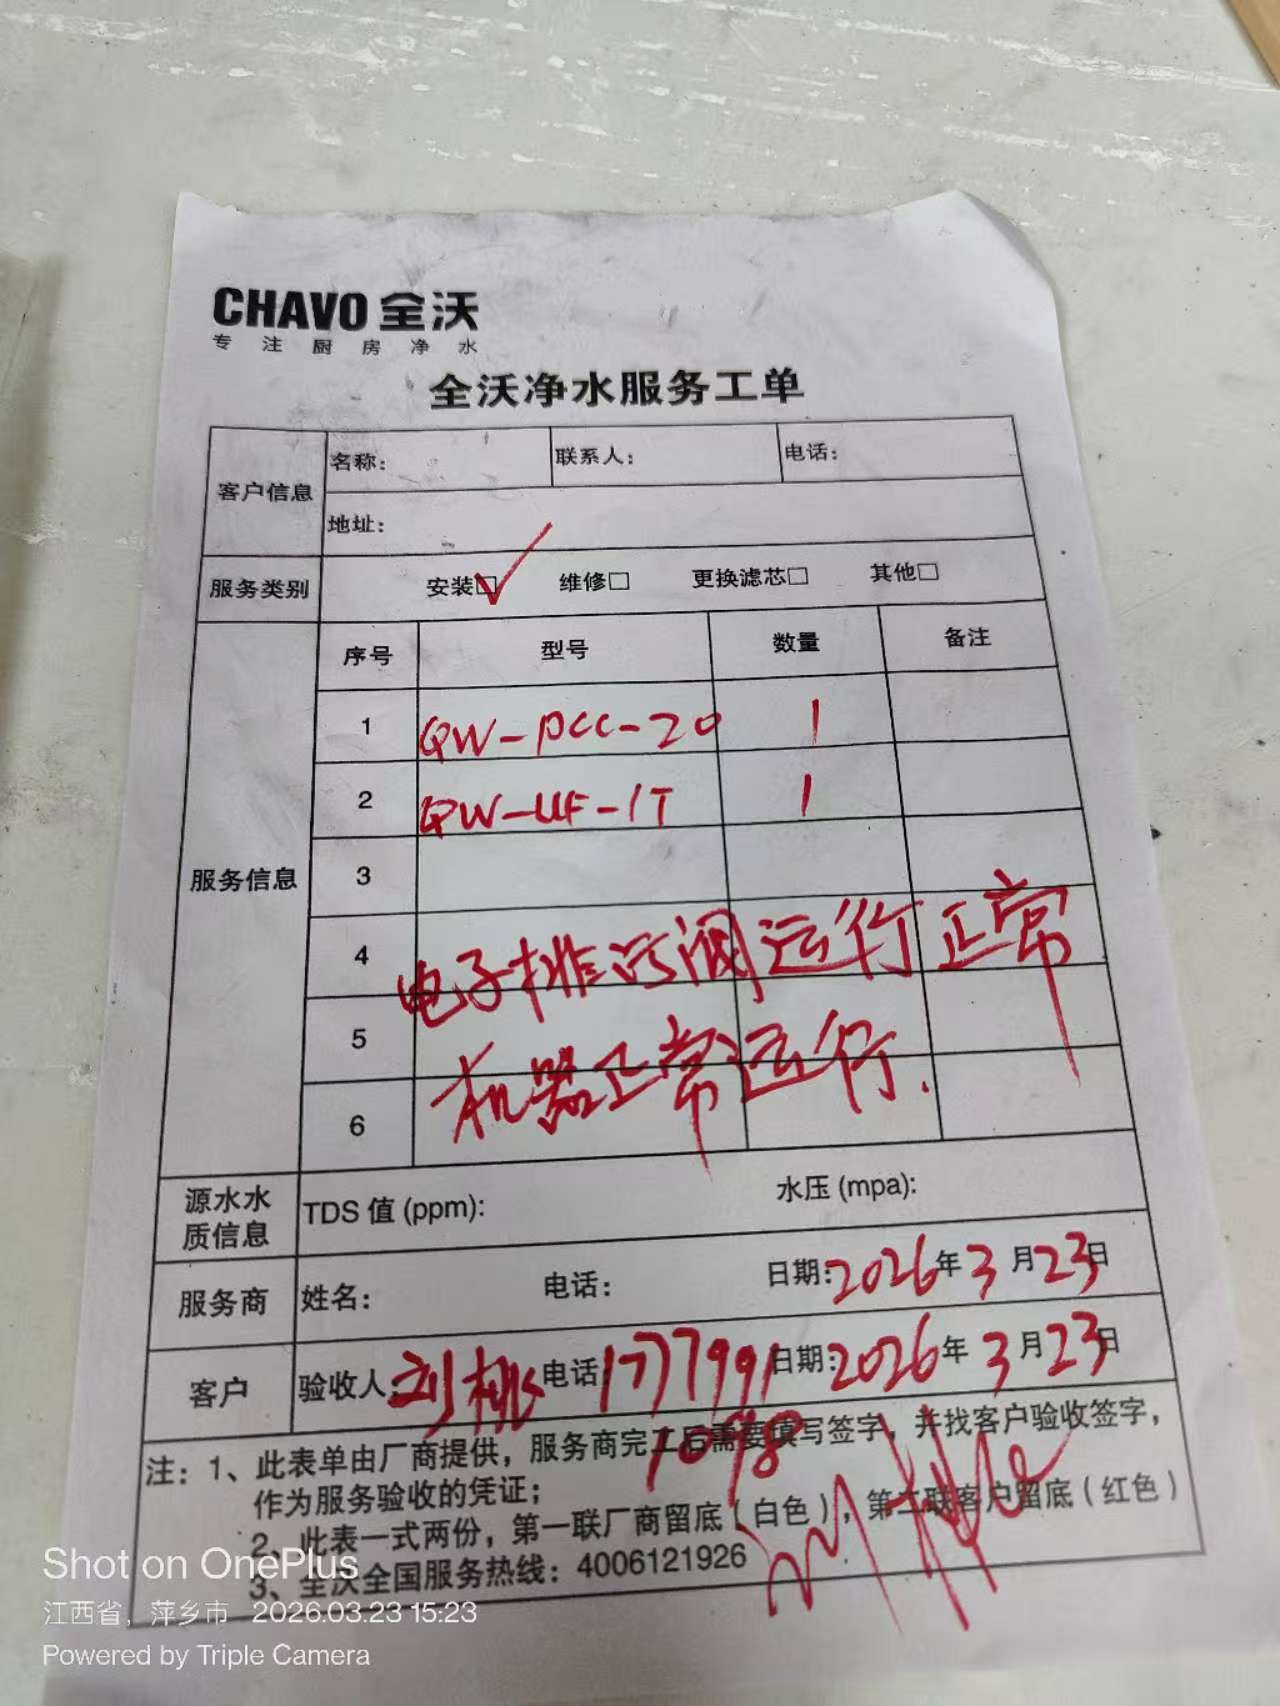 CHAVO 全沃
专注厨房净水
全沃净水服务工单
客户信息 名称: 联系人: 电话:
地址:
服务类别 安装□✓ 维修□ 更换滤芯□ 其他□
服务信息 序号 型号 数量 备注
1 QW-PCC-20 1
2 QW-UF-1T 1
3
4 电子排污阀运行正常
5 机器正常运行.
6
源水水质信息 TDS 值 (ppm): 水压 (mpa):
服务商 姓名: 电话: 日期:2026年3月23日
客户 验收人:刘桃 电话:1777991 日期:2026年3月23日
1098
注: 1、此表单由厂商提供，服务商完工后需要填写签字，并找客户验收签字，
作为服务验收的凭证；
2、此表一式两份，第一联厂商留底（白色），第二联客户留底（红色）
3、全沃全国服务热线：4006121926
刘桃
Shot on OnePlus
江西省，萍乡市 2026.03.23 15:23
Powered by Triple Camera